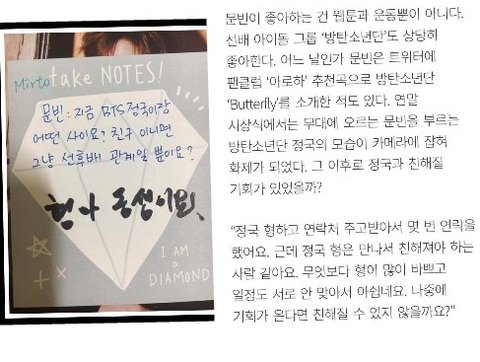 Mirto take NOTES!
문빈 : 지금 BTS정국이랑
어떤 사이요? 친구 아니면
그냥 선후배 관계일 뿐이요?
형 나 동생이요,
I AM
a
DIAMOND
문빈이 좋아하는 건 웹툰과 운동뿐이 아니다.
선배 아이돌 그룹 ‘방탄소년단’도 상당히
좋아한다. 어느 날인가 문빈은 트위터에
팬클럽 ‘아로하’ 추천곡으로 방탄소년단
‘Butterfly’를 소개한 적도 있다. 연말
시상식에서는 무대에 오르는 문빈을 부르는
방탄소년단 정국의 모습이 카메라에 잡혀
화제가 되었다. 그 이후로 정국과 친해질
기회가 있었을까?
“정국 형하고 연락처 주고받아서 몇 번 연락을
했어요. 근데 정국 형은 만나서 친해져야 하는
사람 같아요. 무엇보다 형이 많이 바쁘고
일정도 서로 안 맞아서 아쉽네요. 나중에
기회가 온다면 친해질 수 있지 않을까요?”